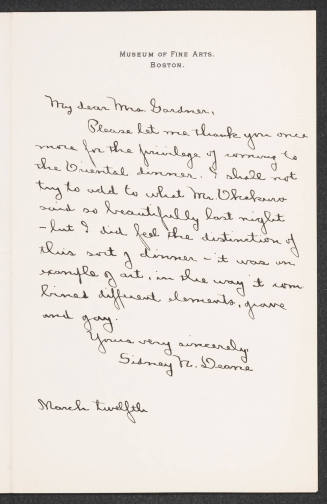 Museum of Fine Arts.
Boston.
My dear Mrs. Gardner,
Please let me thank you once
more for the privilege of coming to
the Oriental dinner. I shall not
try to add to what Mr. Okakura
said so beautifully last night
- but I did feel the distinction of
this sort of dinner - it was an
example of art, in the way it com
bined different elements, grave
and gay.
Yours very sincerely,
Sidney N. Deane
March twelfth